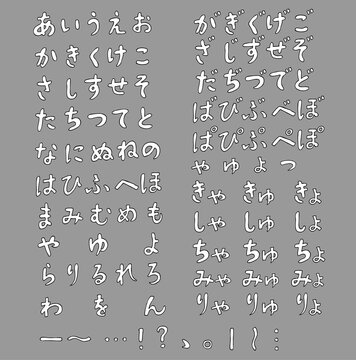 あいうえお
かきくけこ
さしすせそ
たちつてと
なにぬねの
はひふへほ
まみむめも
や ゆ よ
らりるれろ
わ を ん
がぎぐげご
ざじずぜぞ
だぢづでど
ばびぶべぼ
ぱぴぷぺぽ
ゃゅょっ
きゃ きゅ きょ
しゃ しゅ しょ
ちゃ ちゅ ちょ
みゃ みゅ みょ
りゃ りゅ りょ
ー〜…！？、。｜〜⋮